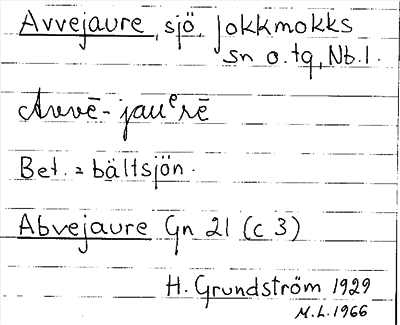 Avvejaure, sjö, Jokkmokks
sn o. tg, Nb.l.
Avvē-jauᵉrē
Bet. = bältsjön.
Abvejaure Gn 21 (c 3)
H. Grundström 1929
M.L. 1966